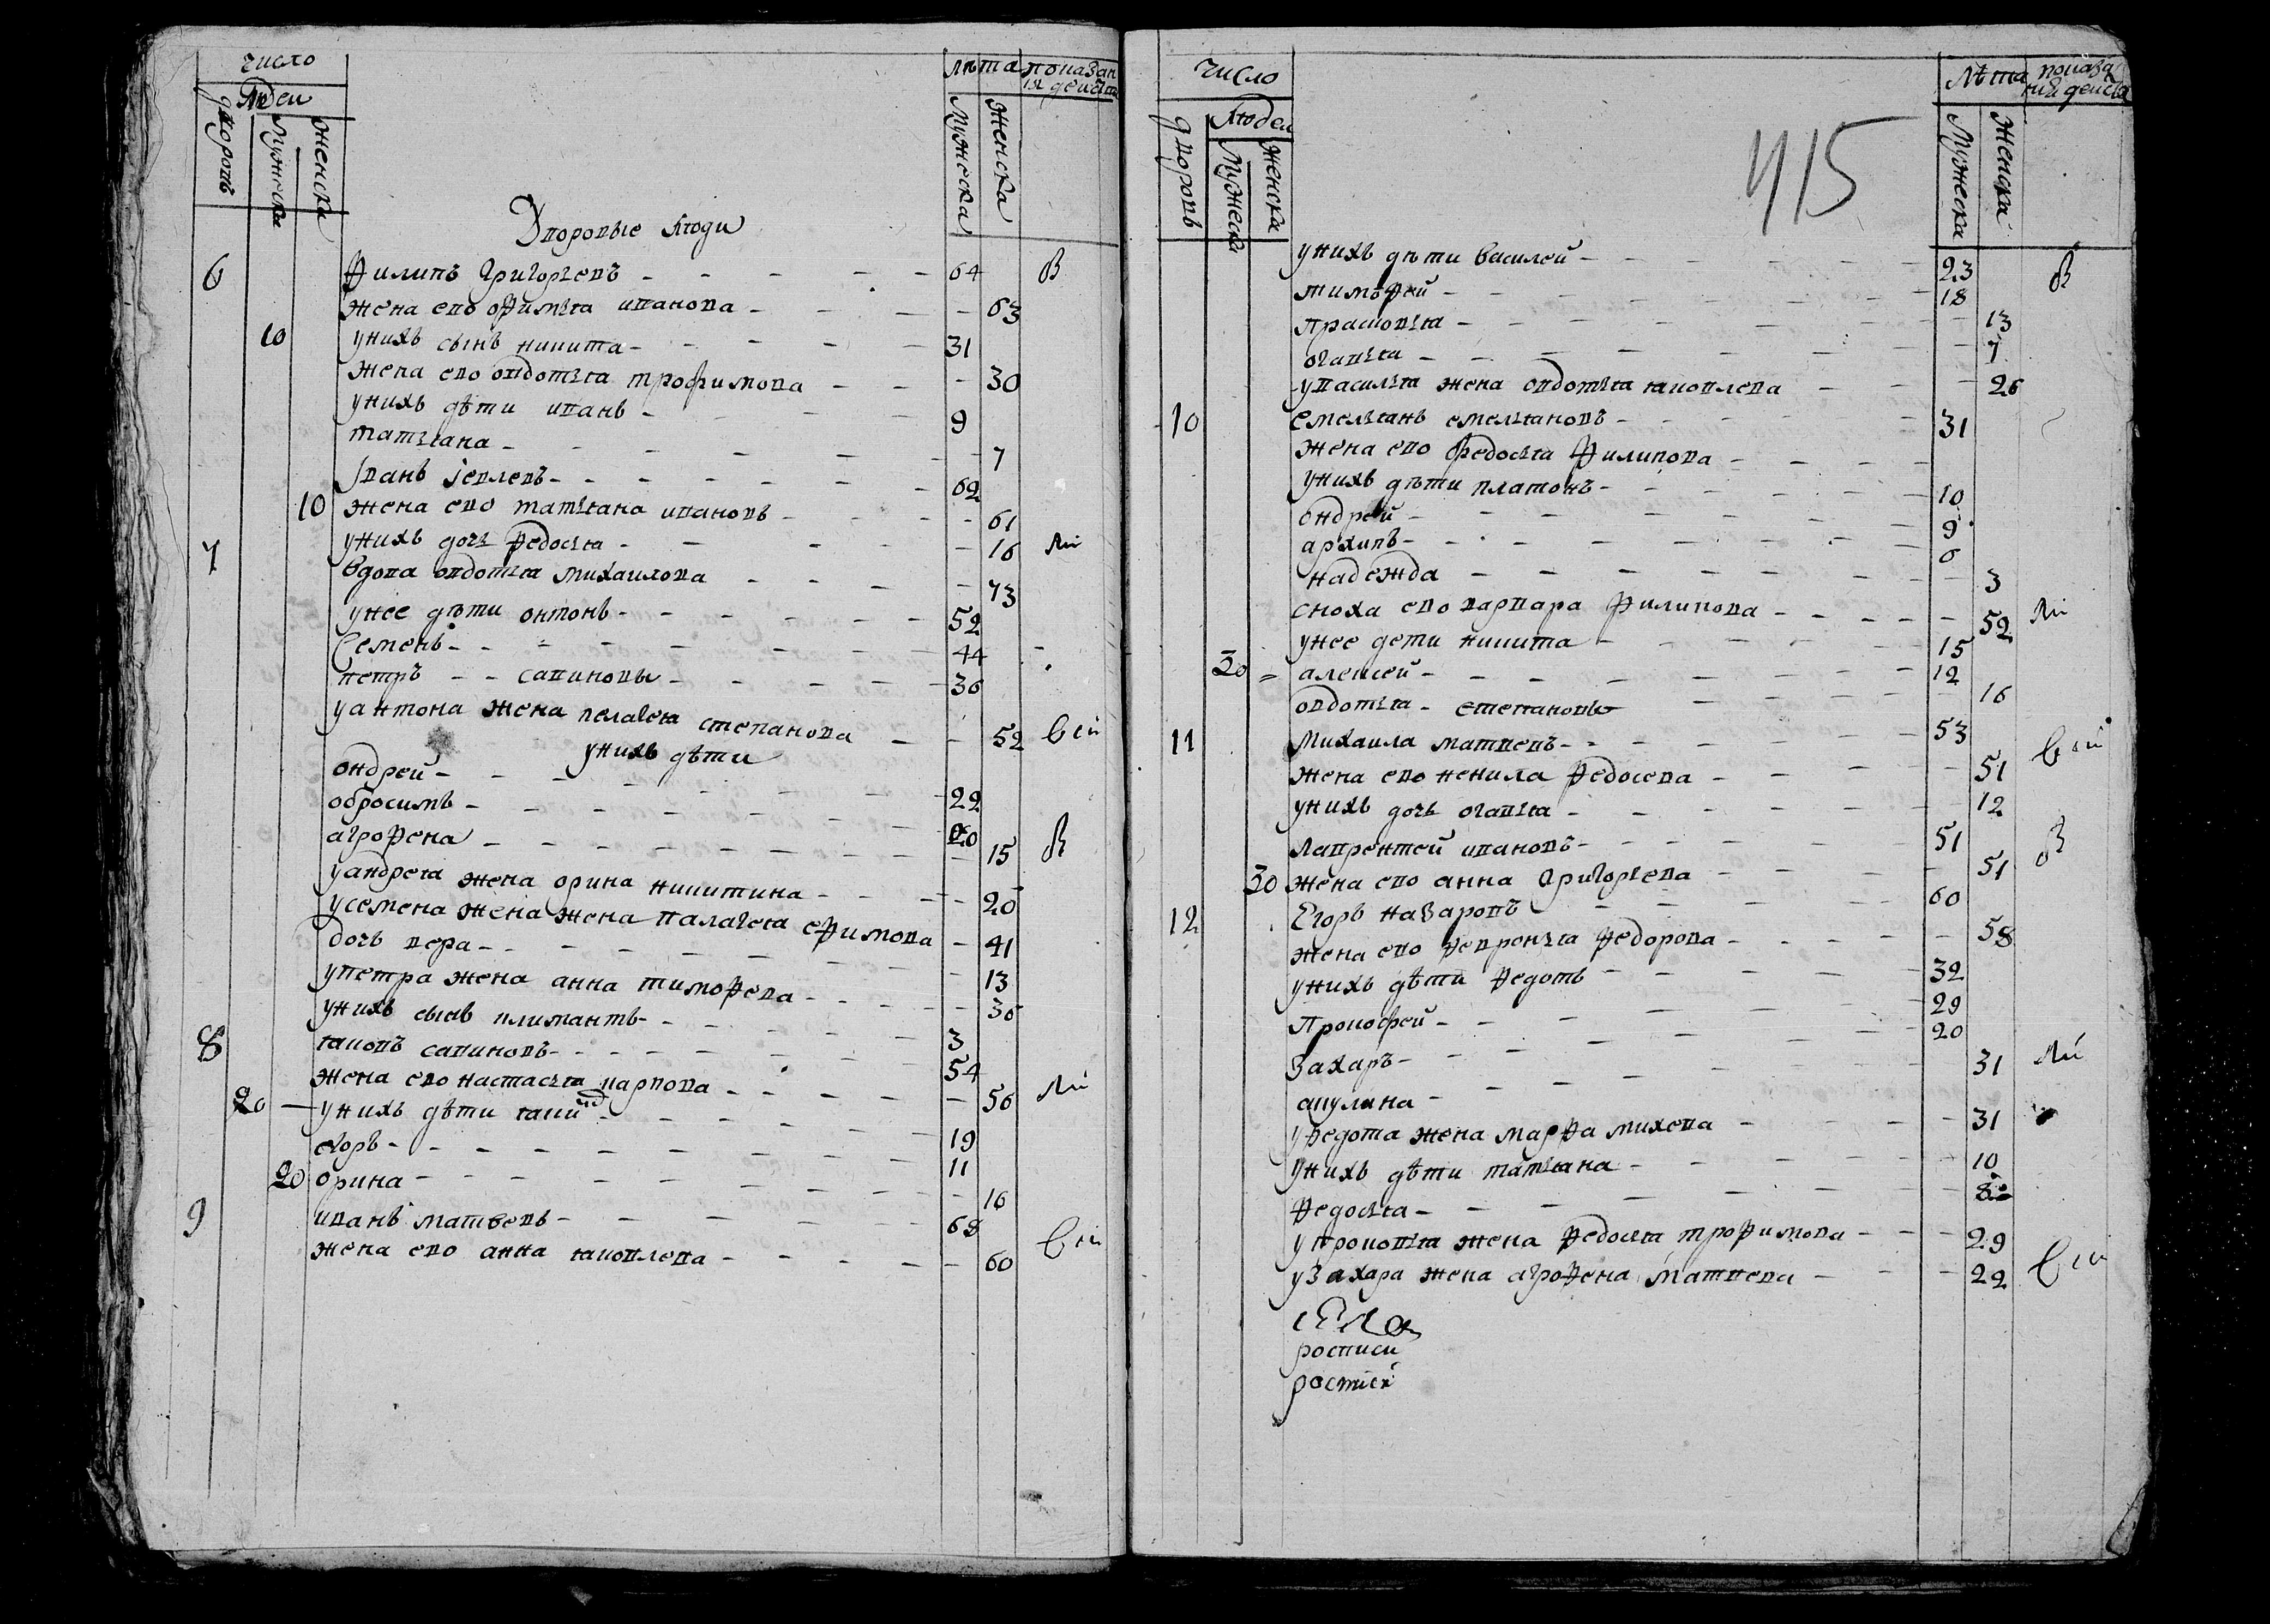 число
людеи
дворовъ
мужеска
женска
лѣта
показан
ия действ
мужеска
женска
Дворовые люди
6 Филипъ Григорьевъ - 64 В
жена ево офимья иванова - 63
10 унихъ сынъ никита - 31
жена ево овдотья трофимова - 30
унихъ дѣти иванъ - 9
татьяна - 7
Iванъ Iевлевъ - 62
10 жена ево татьяна ивановъ - 61
унихъ дочь федосья - 16
7 вдова овдотья михаилова - 73
унее дѣти онтонъ - 52
Семенъ - 44
петръ - савиновы - 36
уантона жена пелагея степанова - 52
унихъ дѣти
ондрей - 22
обросимъ - 20
агрофена - 15 В
уандрея жена орина никитина - 20
усемена жена жена палагея ефимова - 41
дочь вера - 13
упетра жена анна тимофева - 36
унихъ сынъ климантъ - 3
8 яковъ савиновъ - 54
жена ево настасья карпова - 56
20 унихъ дѣти - 19
егоръ - 11
20 орина - 16
9 иванъ матвевъ - 68
жена ево анна яковлева - 60
число
людеи
дворовъ
мужеска
женска
лѣта
показа
ния действ
мужеска
женска
415
унихъ дѣти василей - 23 В
тимофей - 18
прасковья - 13
огавья - 7
увасилья жена овдотья яковлева - 26
10 емельянъ емельяновъ - 31
жена ево федосья филипова -
унихъ дѣти платонъ - 10
ондрей - 9
архипъ - 6
надежда - 3
сноха ево варвара филипова - 52
унее дети никита - 15
30 алексей - 12
овдотья - степановы - 16
11 михаила матвевъ - 53
жена ево ненила федосева - 51
унихъ дочь огавья - 12
лаврентей ивановъ - 51 В
30 жена ево анна григорьева - 51
12 Егоръ назаровъ - 60
жена ево февронья федорова - 58
унихъ дѣти федотъ - 32
Прокофей - 29
Захаръ - 20
акулина - 31
уфедота жена марфа михева - 31
унихъ дѣти татьяна - 10
федосья - 8
упрокофья жена федосья трофимова - 29
узахара жена агрофена матвева - 22
росписи